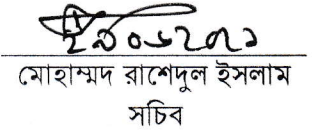 মোহাম্মদ রাশেদুল ইসলাম
সচিব